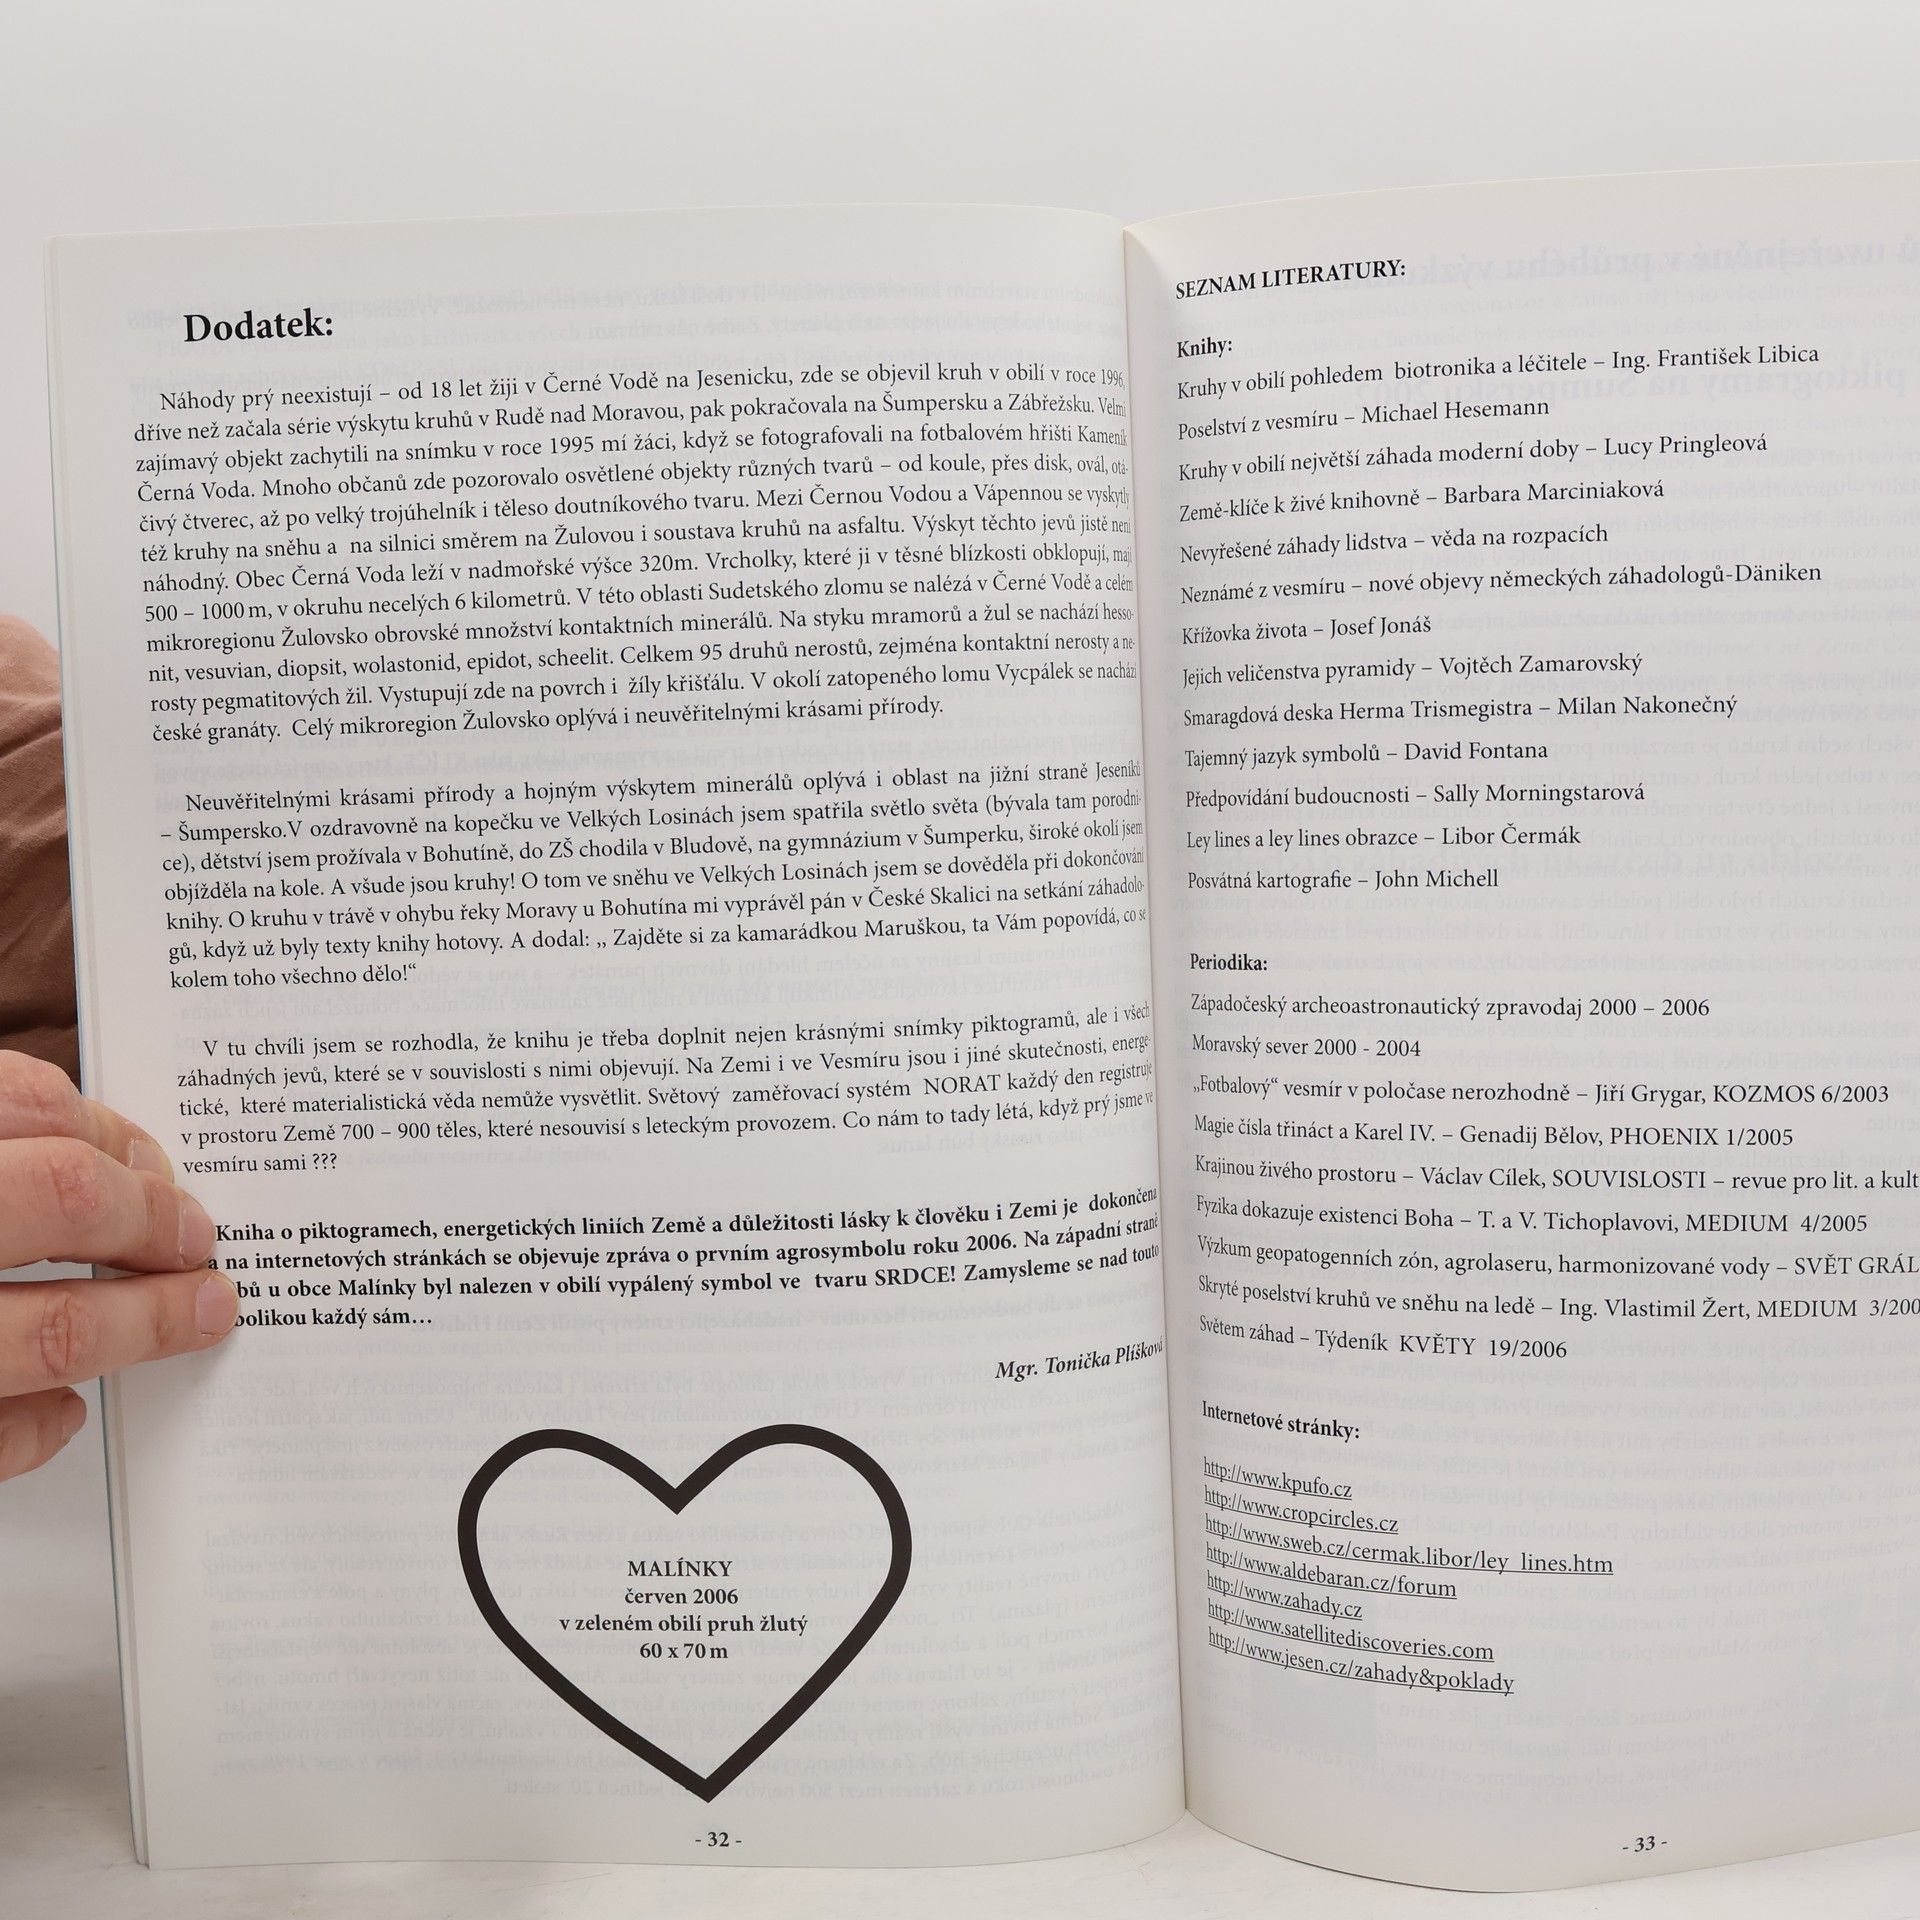 Dodatek:
Náhody prý neexistují – od 18 let žiji v Černé Vodě na Jesenicku, zde se objevil kruh v obilí v roce 1996,
dříve než začala série výskytu kruhů v Rudě nad Moravou, pak pokračovala na Šumpersku a Zábřežsku. Velmi
zajímavý objekt zachytili na snímku v roce 1995 mí žáci, když se fotografovali na fotbalovém hřišti Kameník
Černá Voda. Mnoho občanů zde pozorovalo osvětlené objekty různých tvarů – od koule, přes disk, ovál, otá-
čivý čtverec, až po velký trojúhelník i těleso doutníkového tvaru. Mezi Černou Vodou a Vápennou se vyskytly
též kruhy na sněhu a na silnici směrem na Žulovou i soustava kruhů na asfaltu. Výskyt těchto jevů jistě není
náhodný. Obec Černá Voda leží v nadmořské výšce 320m. Vrcholky, které ji v těsné blízkosti obklopují, mají
500 – 1000 m, v okruhu necelých 6 kilometrů. V této oblasti Sudetského zlomu se nalézá v Černé Vodě a celém
mikroregionu Žulovsko obrovské množství kontaktních minerálů. Na styku mramorů a žul se nachází hesso-
nit, vesuvian, diopsit, wolastonid, epidot, scheelit. Celkem 95 druhů nerostů, zejména kontaktní nerosty a ne-
rosty pegmatitových žil. Vystupují zde na povrch i žíly křišťálu. V okolí zatopeného lomu Vycpálek se nachází
české granáty. Celý mikroregion Žulovsko oplývá i neuvěřitelnými krásami přírody.
Neuvěřitelnými krásami přírody a hojným výskytem minerálů oplývá i oblast na jižní straně Jeseníků
– Šumpersko.V ozdravovně na kopečku ve Velkých Losinách jsem spatřila světlo světa (bývala tam porodni-
ce), dětství jsem prožívala v Bohutíně, do ZŠ chodila v Bludově, na gymnázium v Šumperku, široké okolí jsem
objížděla na kole. A všude jsou kruhy! O tom ve sněhu ve Velkých Losinách jsem se dověděla při dokončování
knihy. O kruhu v trávě v ohybu řeky Moravy u Bohutína mi vyprávěl pán v České Skalici na setkání záhadolo-
gů, když už byly texty knihy hotovy. A dodal: „ Zajděte si za kamarádkou Maruškou, ta Vám popovídá, co se
kolem toho všechno dělo!“
V tu chvíli jsem se rozhodla, že knihu je třeba doplnit nejen krásnými snímky piktogramů, ale i všech
záhadných jevů, které se v souvislosti s nimi objevují. Na Zemi i ve Vesmíru jsou i jiné skutečnosti, energe-
tické, které materialistická věda nemůže vysvětlit. Světový zaměřovací systém NORAT každý den registruje
v prostoru Země 700 – 900 těles, které nesouvisí s leteckým provozem. Co nám to tady létá, když prý jsme ve
vesmíru sami ???
Kniha o piktogramech, energetických liniích Země a důležitosti lásky k člověku i Zemi je dokončena
a na internetových stránkách se objevuje zpráva o prvním agrosymbolu roku 2006. Na západní straně
bů u obce Malínky byl nalezen v obilí vypálený symbol ve tvaru SRDCE! Zamysleme se nad touto
bolikou každý sám…
Mgr. Tonička Plíšková
MALÍNKY
červen 2006
v zeleném obilí pruh žlutý
60 x 70 m
- 32 -
SEZNAM LITERATURY:
Knihy:
Kruhy v obilí pohledem biotronika a léčitele – Ing. František Libica
Poselství z vesmíru – Michael Hesemann
Kruhy v obilí největší záhada moderní doby – Lucy Pringleová
Země-klíče k živé knihovně – Barbara Marciniaková
Nevyřešené záhady lidstva – věda na rozpacích
Neznámé z vesmíru – nové objevy německých záhadologů-Däniken
Křížovka života – Josef Jonáš
Jejich veličenstva pyramidy – Vojtěch Zamarovský
Smaragdová deska Herma Trismegistra – Milan Nakonečný
Tajemný jazyk symbolů – David Fontana
Předpovídání budoucnosti – Sally Morningstarová
Ley lines a ley lines obrazce – Libor Čermák
Posvátná kartografie – John Michell
Periodika:
Západočeský archeoastronautický zpravodaj 2000 – 2006
Moravský sever 2000 - 2004
„Fotbalový“ vesmír v poločase nerozhodně – Jiří Grygar, KOZMOS 6/2003
Magie čísla třináct a Karel IV. – Genadij Bělov, PHOENIX 1/2005
Krajinou živého prostoru – Václav Cílek, SOUVISLOSTI – revue pro lit. a kult
Fyzika dokazuje existenci Boha – T. a V. Tichoplavovi, MEDIUM 4/2005
Výzkum geopatogenních zón, agrolaseru, harmonizované vody – SVĚT GRÁL
Skryté poselství kruhů ve sněhu na ledě – Ing. Vlastimil Žert, MEDIUM 3/200
Světem záhad – Týdeník KVĚTY 19/2006
Internetové stránky:
http://www.kpufo.cz
http://www.cropcircles.cz
http://www.sweb.cz/cermak.libor/ley_lines.htm
http://www.aldebaran.cz/forum
http://www.zahady.cz
http://www.satellitediscoveries.com
http://www.jesen.cz/zahady&poklady
- 33 -